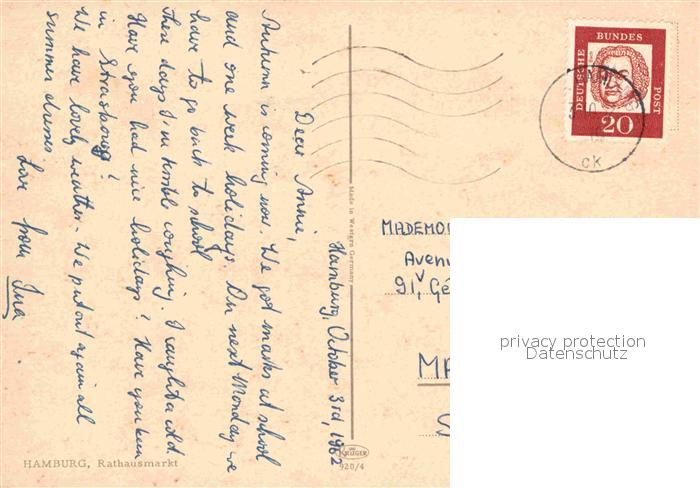 Hamburg, October 3rd, 1962
Dear Annie,
Autumn is coming now. We got marks at school
and one week holidays. On next Monday we
have to go back to school
These days I'm terrible coughing. I caught a cold.
Have you had nice holidays? Have you been
in Strasbourg?
We have lovely weather. We put on again all
summer dresses.
Love from Ina
HAMBURG, Rathausmarkt
Made in Western Germany
KRÜGER
920/4
DEUTSCHE BUNDES POST
20
MADEMOI
Avenu
91, Gé
MA
privacy protection
Datenschutz